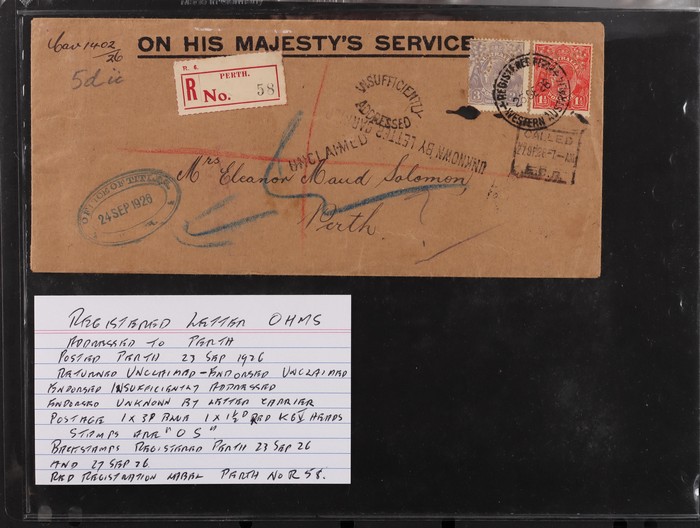 Cav 1402/26
5d ii
ON HIS MAJESTY'S SERVICE
PERTH.
R No. 58
INSUFFICIENTLY ADDRESSED
UNKNOWN BY LETTER CARRIER
UNCLAIMED
REGISTERED
WESTERN AUSTRALIA
CALLED
27SP26-7-AM
OFFICE OF TITLES
24 SEP 1926
Mrs Eleanor Maud Solomon,
Perth.
REGISTERED LETTER OHMS
ADDRESSED TO PERTH
POSTED PERTH 23 SEP 1926
RETURNED UNCLAIMED - ENDORSED UNCLAIMED
ENDORSED INSUFFICIENTLY ADDRESSED
ENDORSED UNKNOWN BY LETTER CARRIER
POSTAGE 1 X 3D BLUE 1 X 1½D RED KGV HEADS
STAMPS ARE "OS"
BACKSTAMPS REGISTERED PERTH 23 SEP 26
AND 27 SEP 26
RED REGISTRATION LABEL PERTH NO R 58.